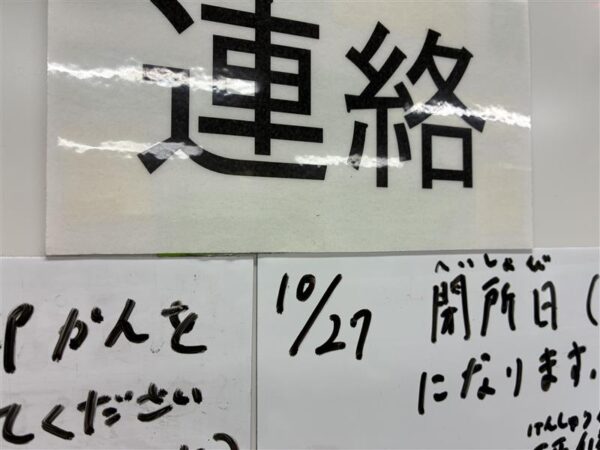 連絡
かんを
てください
10/27
へいしょび
閉所日(
になります。
けんしゅう